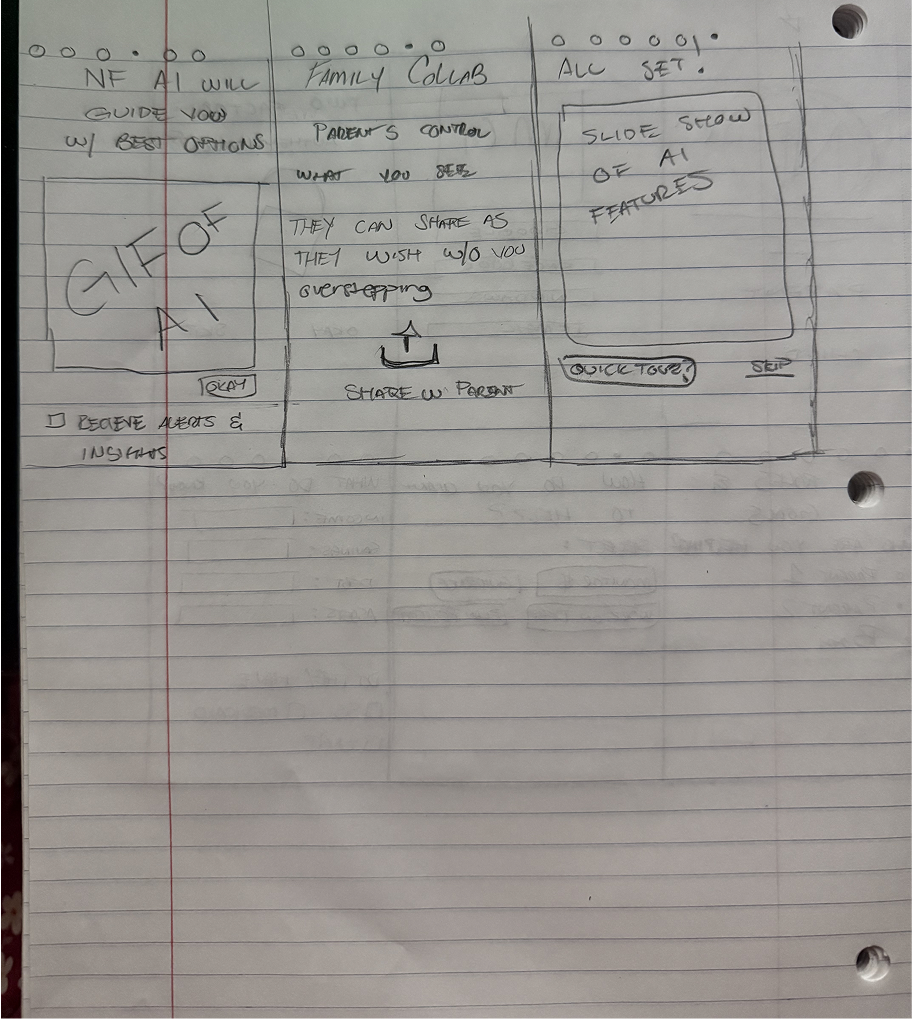 NF AI WILL
GUIDE YOU
W/ BEST OPTIONS
GIF OF
AI
OKAY
RECIEVE ALERTS &
INSIGHTS
FAMILY COLLAB
PARENTS CONTROL
WHAT YOU SEE
THEY CAN SHARE AS
THEY WISH W/O YOU
overstepping
SHARE W PARENT
ALL SET!
SLIDE SHOW
OF AI
FEATURES
QUICK TOUR?
SKIP